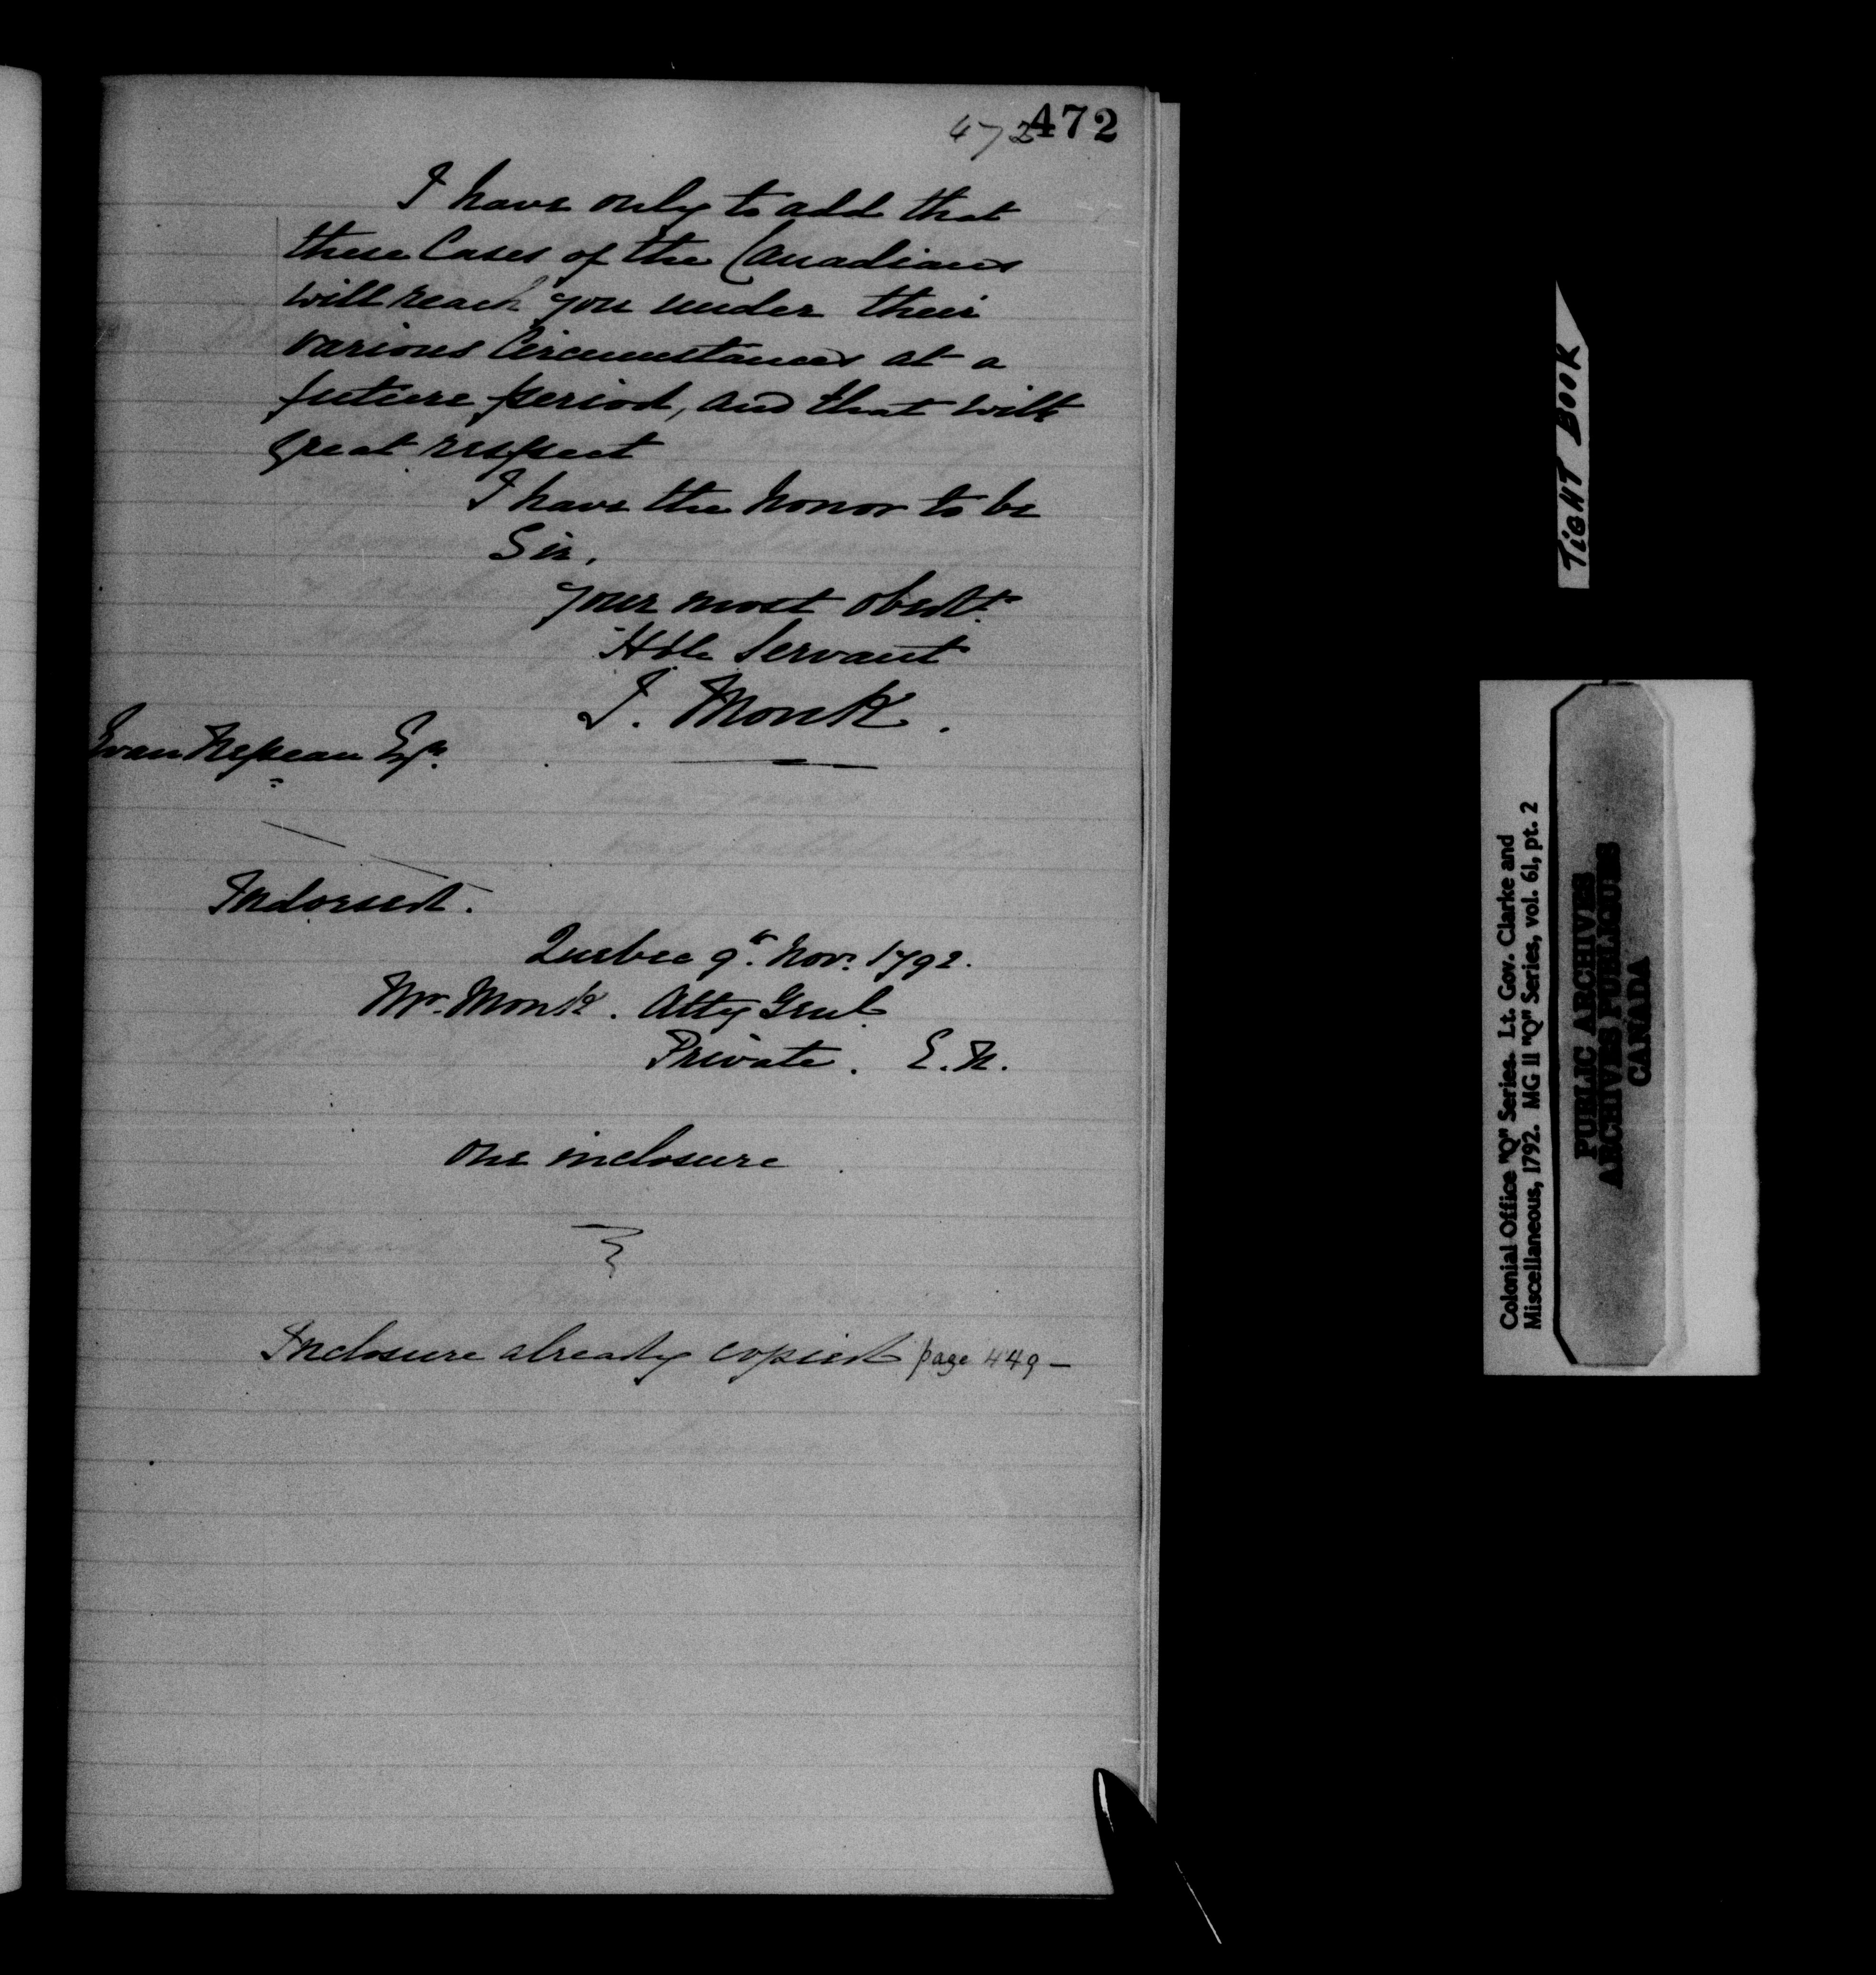 472 472
I have only to add that
these Cases of the Canadians
will reach you under their
various Circumstances at a
future period, and that with
great respect
I have the honor to be
Sir,
your most obedt.
Hble Servant
J. Monk.
Evan Nepean Esqr.
Indorsed.
Quebec 9th. Novr. 1792.
Mr. Monk. Atty Genl.
Private. E.N.
one inclosure
Inclosure already copied page 449 —
TIGHT BOOK
Colonial Office "Q" Series. Lt. Gov. Clarke and
Miscellaneous, 1792. MG 11 "Q" Series, vol. 61, pt. 2
PUBLIC ARCHIVES
ARCHIVES PUBLIQUES
CANADA